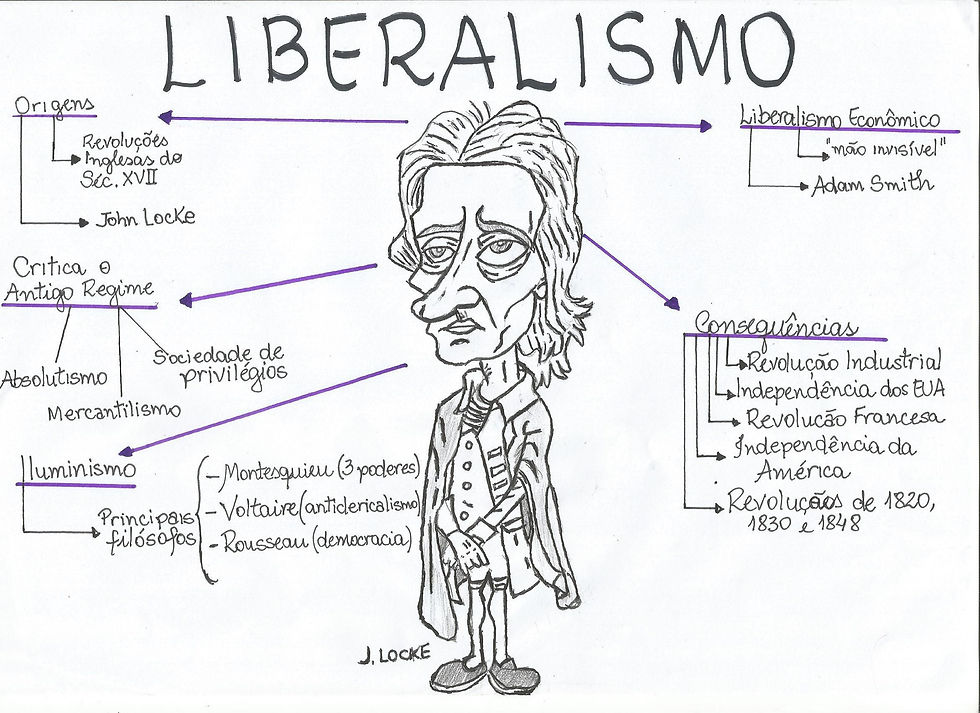 LIBERALISMO
Origens
Revoluções
Inglesas do
Séc. XVII
John Locke
Critica o
Antigo Regime
Absolutismo
Mercantilismo
Sociedade de
privilégios
Iluminismo
Principais
filósofos
- Montesquieu (3 poderes)
- Voltaire (anticlericalismo)
- Rousseau (democracia)
Liberalismo Econômico
"mão invisível"
Adam Smith
Consequências
Revolução Industrial
Independência dos EUA
Revolução Francesa
Independência da
América
Revoluções de 1820,
1830 e 1848
J. LOCKE